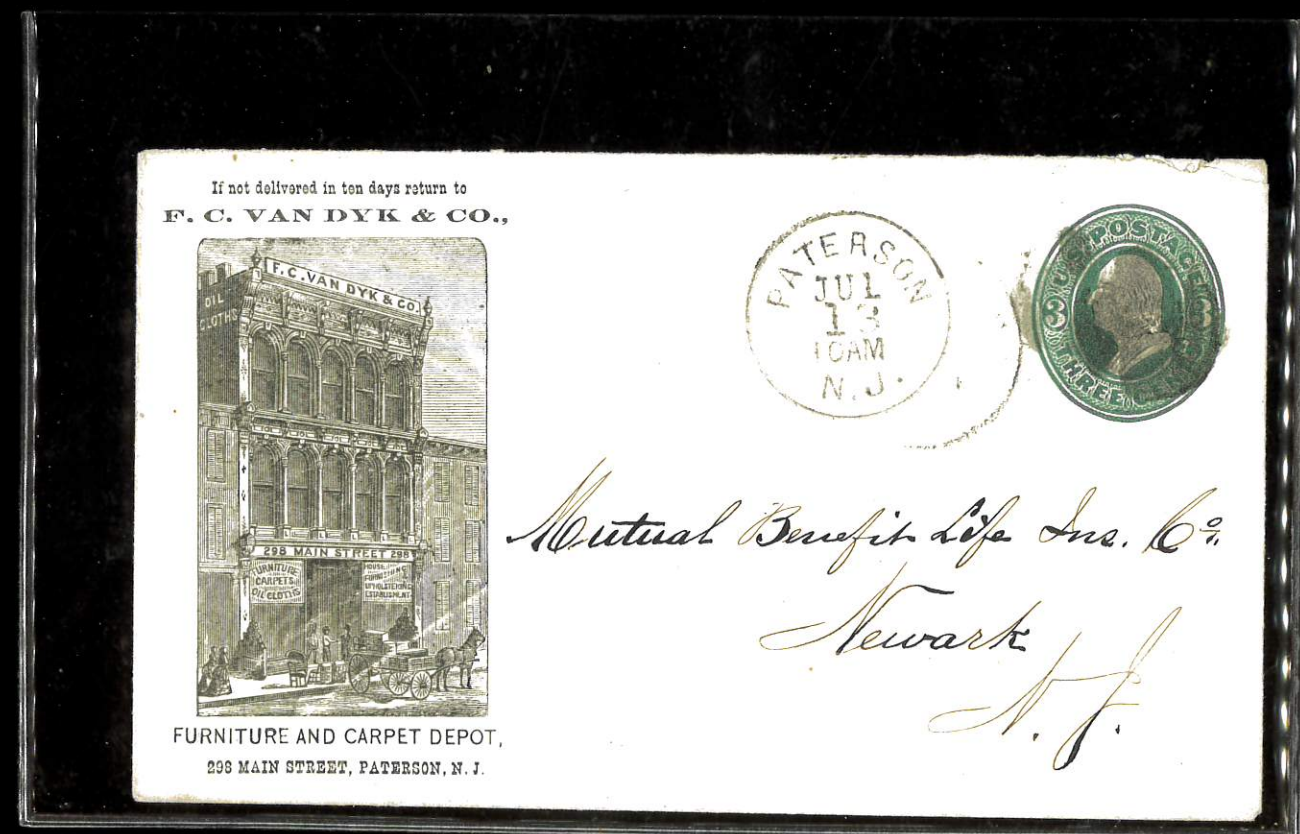 If not delivered in ten days return to
F. C. VAN DYK & CO.,
F. C. VAN DYK & CO.
OIL
CLOTHS
298 MAIN STREET 298
FURNITURE
CARPETS
OIL CLOTHS
HOUSE
FURNISHING
UPHOLSTERING
ESTABLISHMENT
FURNITURE AND CARPET DEPOT,
298 MAIN STREET, PATERSON, N. J.
PATERSON
JUL
13
10AM
N.J.
U.S. POSTAGE
3 3
THREE
Mutual Benefit Life Ins. Co.
Newark
N. J.